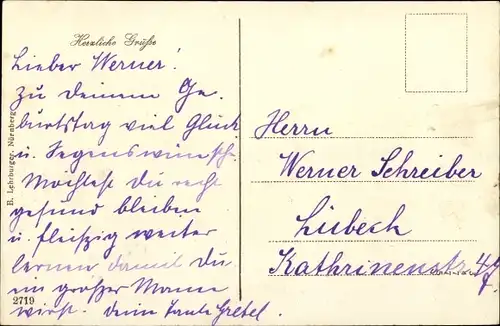 Herzliche Grüße
Lieber Werner!
Zu deinem Ge-
burtstag viel Glück
u. Segenswünsche
Möchtest Du recht
gesund bleiben
u. fleißig weiter
lernen damit Du
ein großer Mann
wirst. Deine Tante Gretel.
B. Lehrburger, Nürnberg
2719
Herrn
Werner Schreiber
Lübeck
Kathrinenstr.